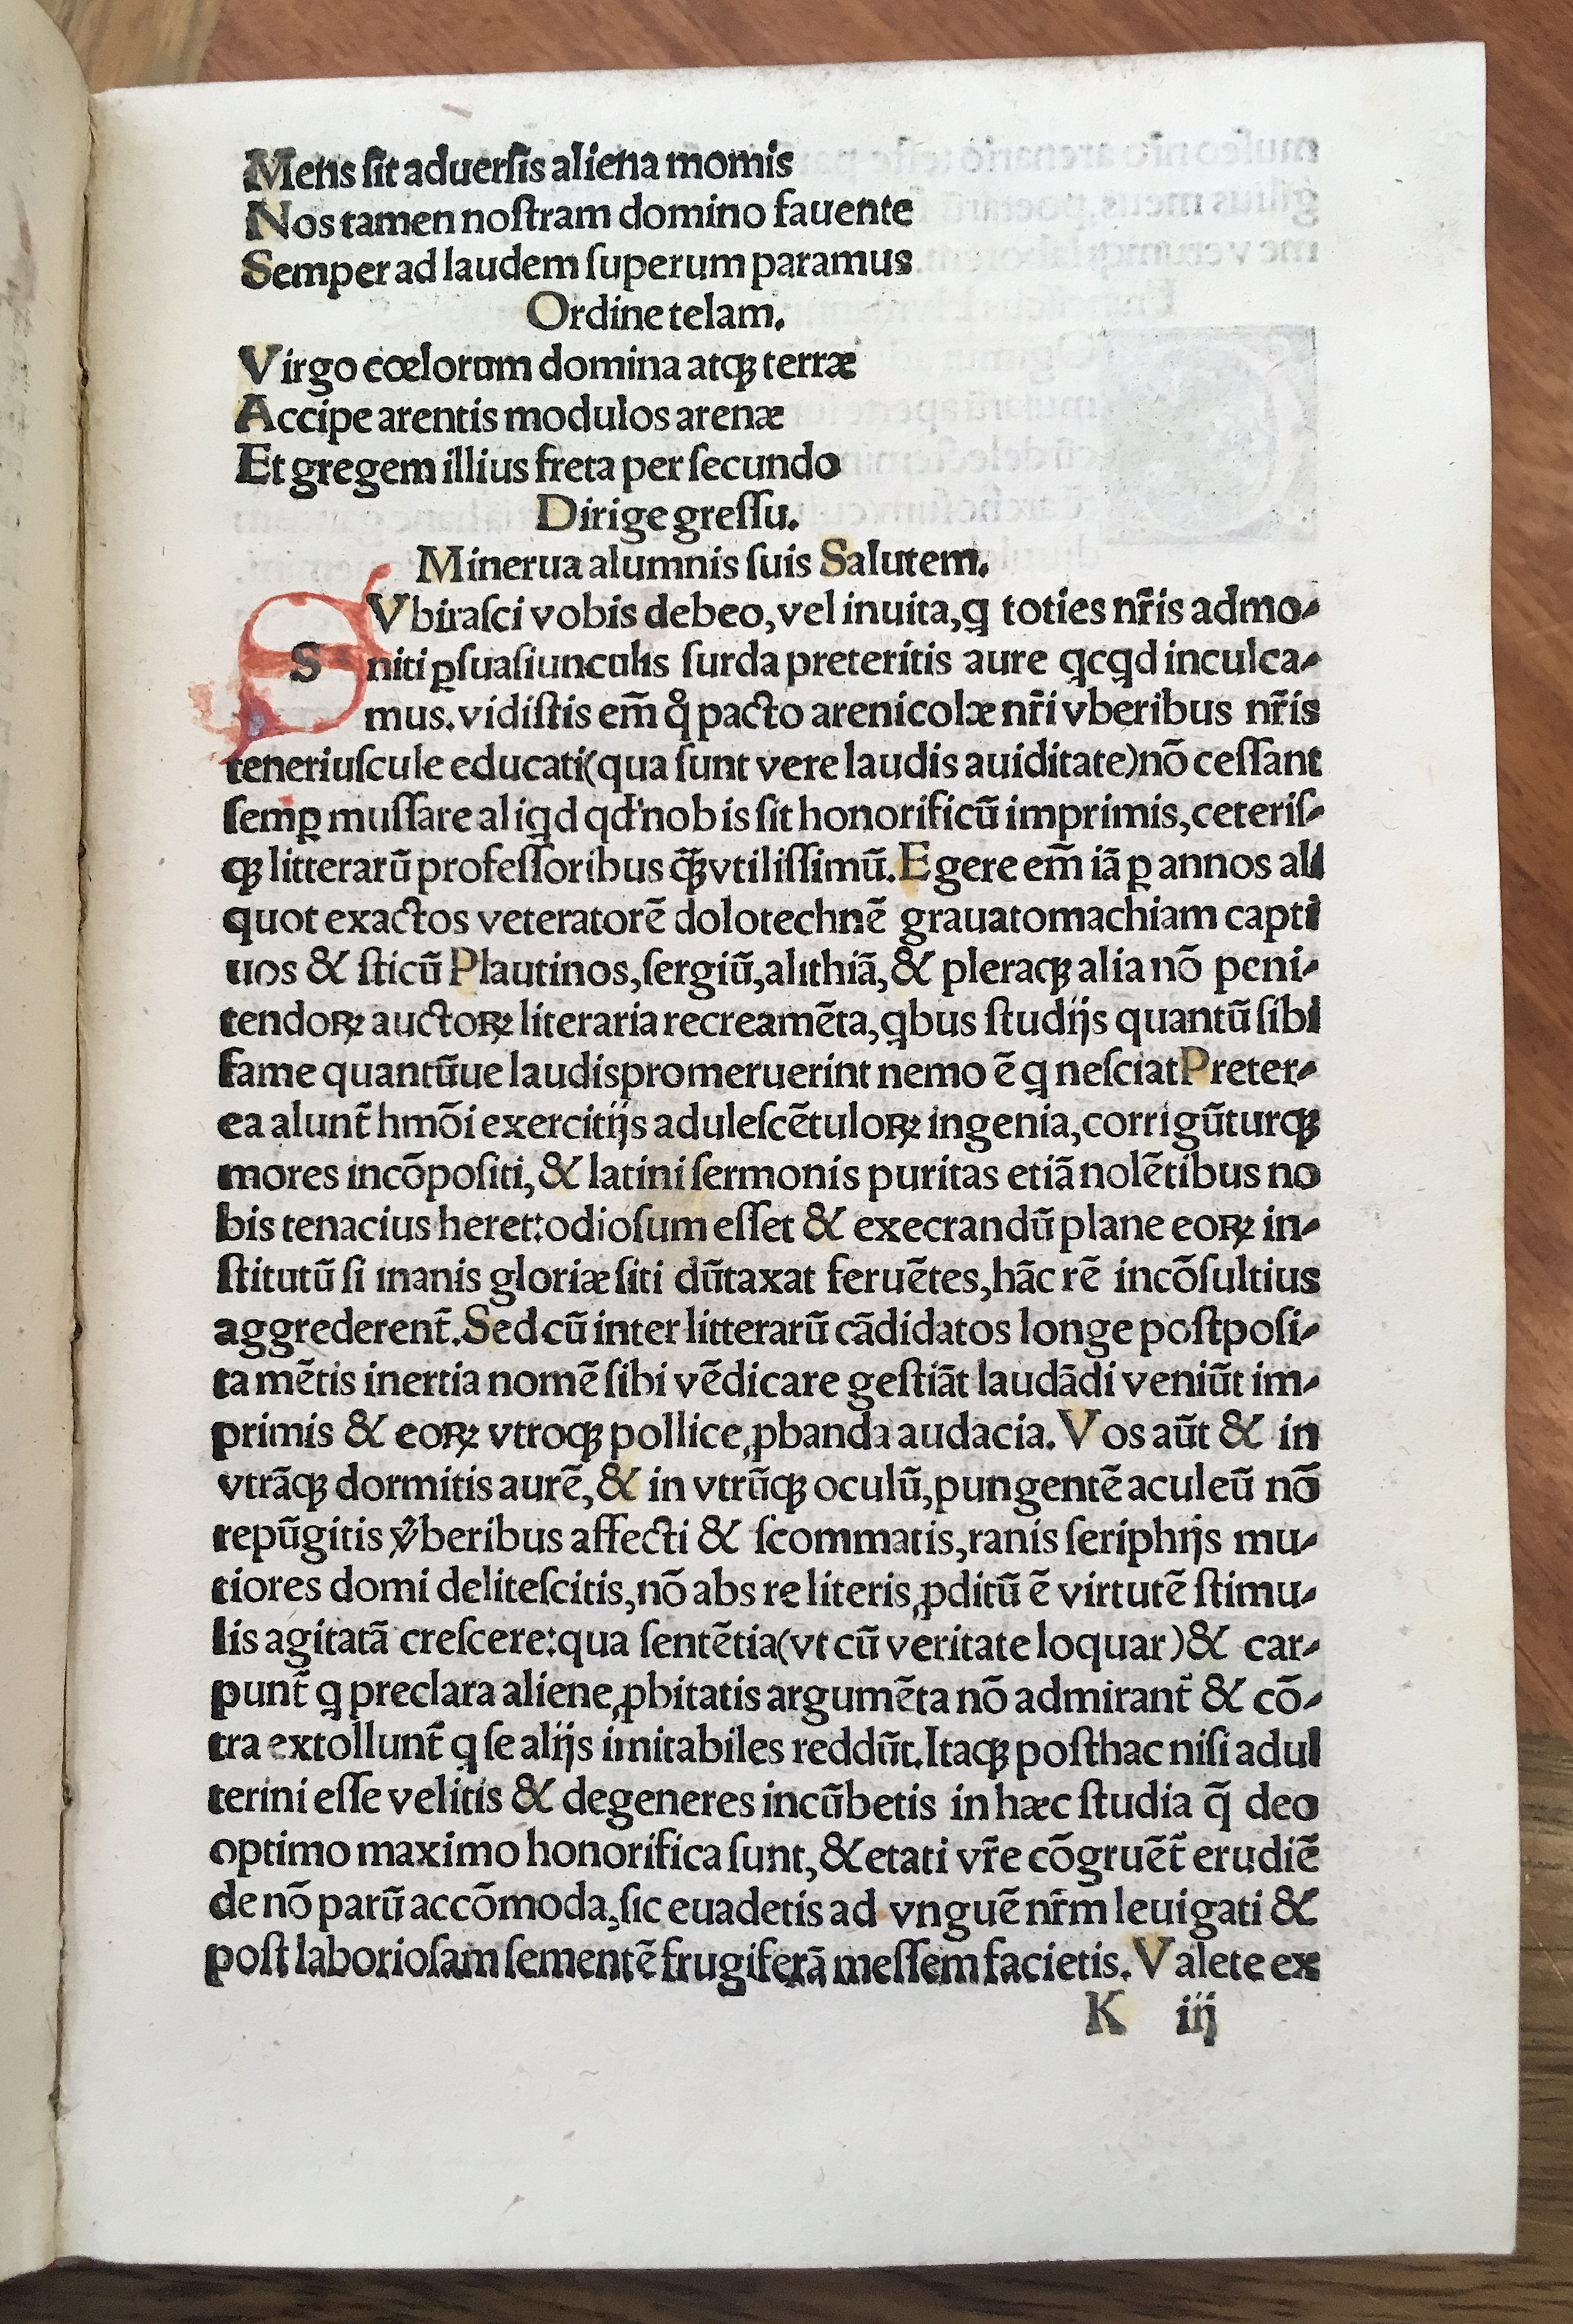 Mens ſit aduerſis aliena momis
Nos tamen noſtram domino fauente
Semper ad laudem ſuperum paramus
Ordine telam.
Virgo cœlorum domina atqꝫ terræ
Accipe arentis modulos arenæ
Et gregem illius freta per ſecundo
Dirige greſſu.
Minerua alumnis ſuis Salutem.
SVbiraſci vobis debeo, vel inuita, ꝗ toties nr̃is admo⸗
niti ꝑſuaſiunculis ſurda preteritis aure ꝗcꝗd inculca⸗
mus. vidiſtis em̃ q̊ pacto arenicolæ nr̃i vberibus nr̃is
teneriuſcule educati(qua ſunt vere laudis auiditate)nõ ceſſant
ſemꝑ muſſare aliꝗd qd' nobis ſit honorificũ imprimis, ceteriſ⸗
qꝫ litterarũ profeſſoribus q̃ꝫ vtiliſſimũ. Egere em̃ iã ꝑ annos ali
quot exactos veteratorẽ dolotechnẽ grauatomachiam capti
uos & ſticũ Plautinos, ſergiũ, alithiã, & pleraqꝫ alia nõ peni⸗
tendoꝝ auctoꝝ literaria recreamẽta, ꝗbus ſtudijs quantũ ſibi
fame quantũue laudis promeruerint nemo ẽ ꝗ neſciat Preter⸗
ea alunt̃ hmõi exercitijs aduleſcẽtuloꝝ ingenia, corrigũturqꝫ
mores incõpoſiti, & latini ſermonis puritas etiã nolẽtibus no
bis tenacius heret: odioſum eſſet & execrandũ plane eoꝝ in⸗
ſtitutũ ſi inanis gloriæ ſiti dũtaxat feruẽtes, hãc rẽ incõſultius
aggrederent̃. Sed cũ inter litterarũ cãdidatos longe poſtpoſi⸗
ta mẽtis inertia nomẽ ſibi vẽdicare geſtiãt laudãdi veniũt im⸗
primis & eoꝝ vtroqꝫ pollice ꝓbanda audacia. Vos aũt & in
vtrãqꝫ dormitis aurẽ, & in vtrũqꝫ oculũ, pungentẽ aculeũ nõ
repũgitis v̾beribus affecti & ſcommatis, ranis ſeriphijs mu⸗
tiores domi deliteſcitis, nõ abs re literis ꝓditũ ẽ virtutẽ ſtimu⸗
lis agitatã creſcere: qua ſentẽtia(vt cũ veritate loquar)& car⸗
punt̃ ꝗ preclara aliene ꝓbitatis argumẽta nõ admirant̃ & cõ⸗
tra extollunt̃ ꝗ ſe alijs imitabiles reddũt. Itaqꝫ poſthac niſi adul
terini eſſe velitis & degeneres incũbetis in hæc ſtudia q̃ deo
optimo maximo honorifica ſunt, & etati vr̃e cõgruẽt̃ erudiẽ
de nõ parũ accõmoda, ſic euadetis ad vnguẽ nr̃m leuigati &
poſt laborioſam ſementẽ frugiferã meſſem facietis. Valete ex
K iij